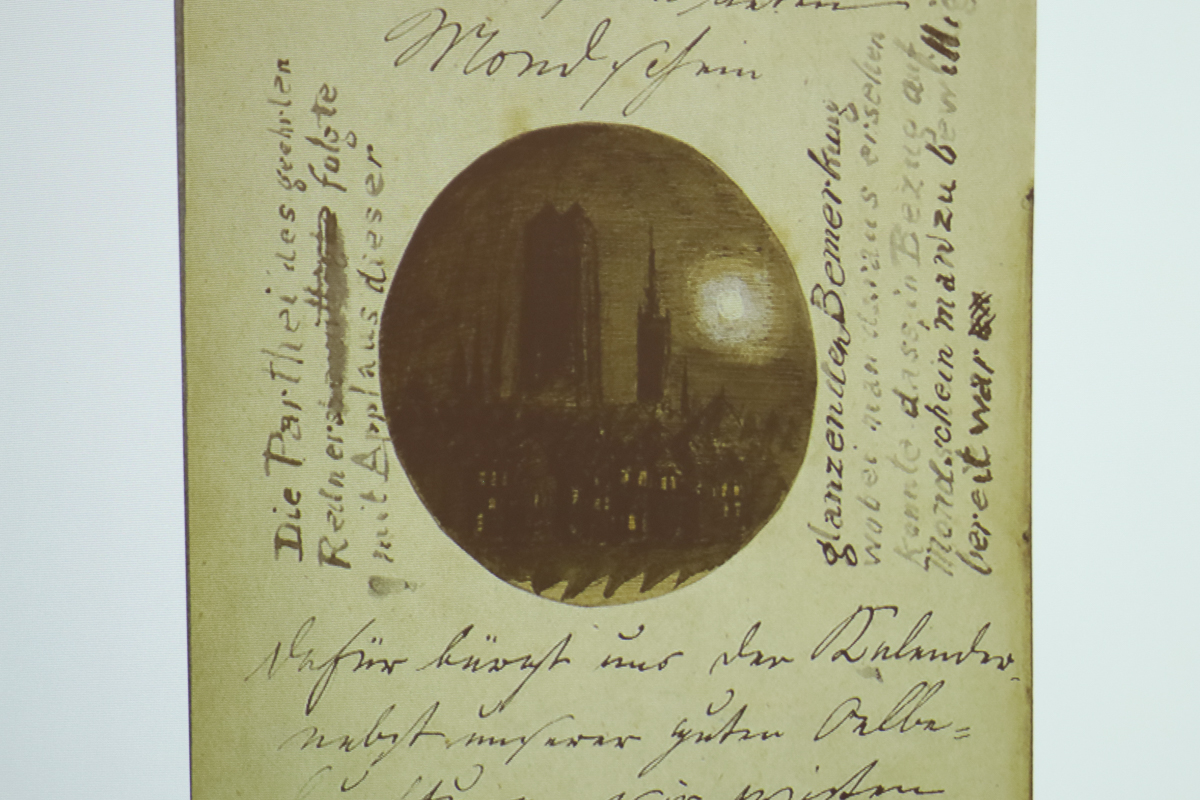 Mondschein
Die Parthei des geehrten
Redners folgte
mit Applaus dieser
glänzenden Bemerkung
wobei man daraus ersehen
konnte dass in Bezug auf
Mondschein man zu bewilligen
bereit war
dafür bürgt uns der Kalender,
nebst unserer guten Oelbe=
wir mußten